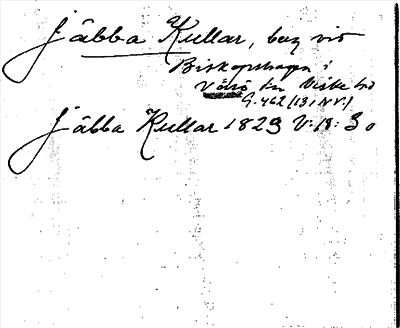 Jäbba Kullar, berg vid
Biskopshagen i
Värö sn Viske hd
G. 462 (13 i NV.)
Jäbba Kullar 1829 V: 18: 30